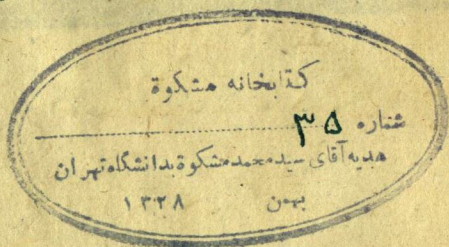 کتابخانه مشکوة
شماره ۳۵
هدیه آقای سیدمحمدمشکوة بدانشگاه تهران
بهمن ۱۳۲۸